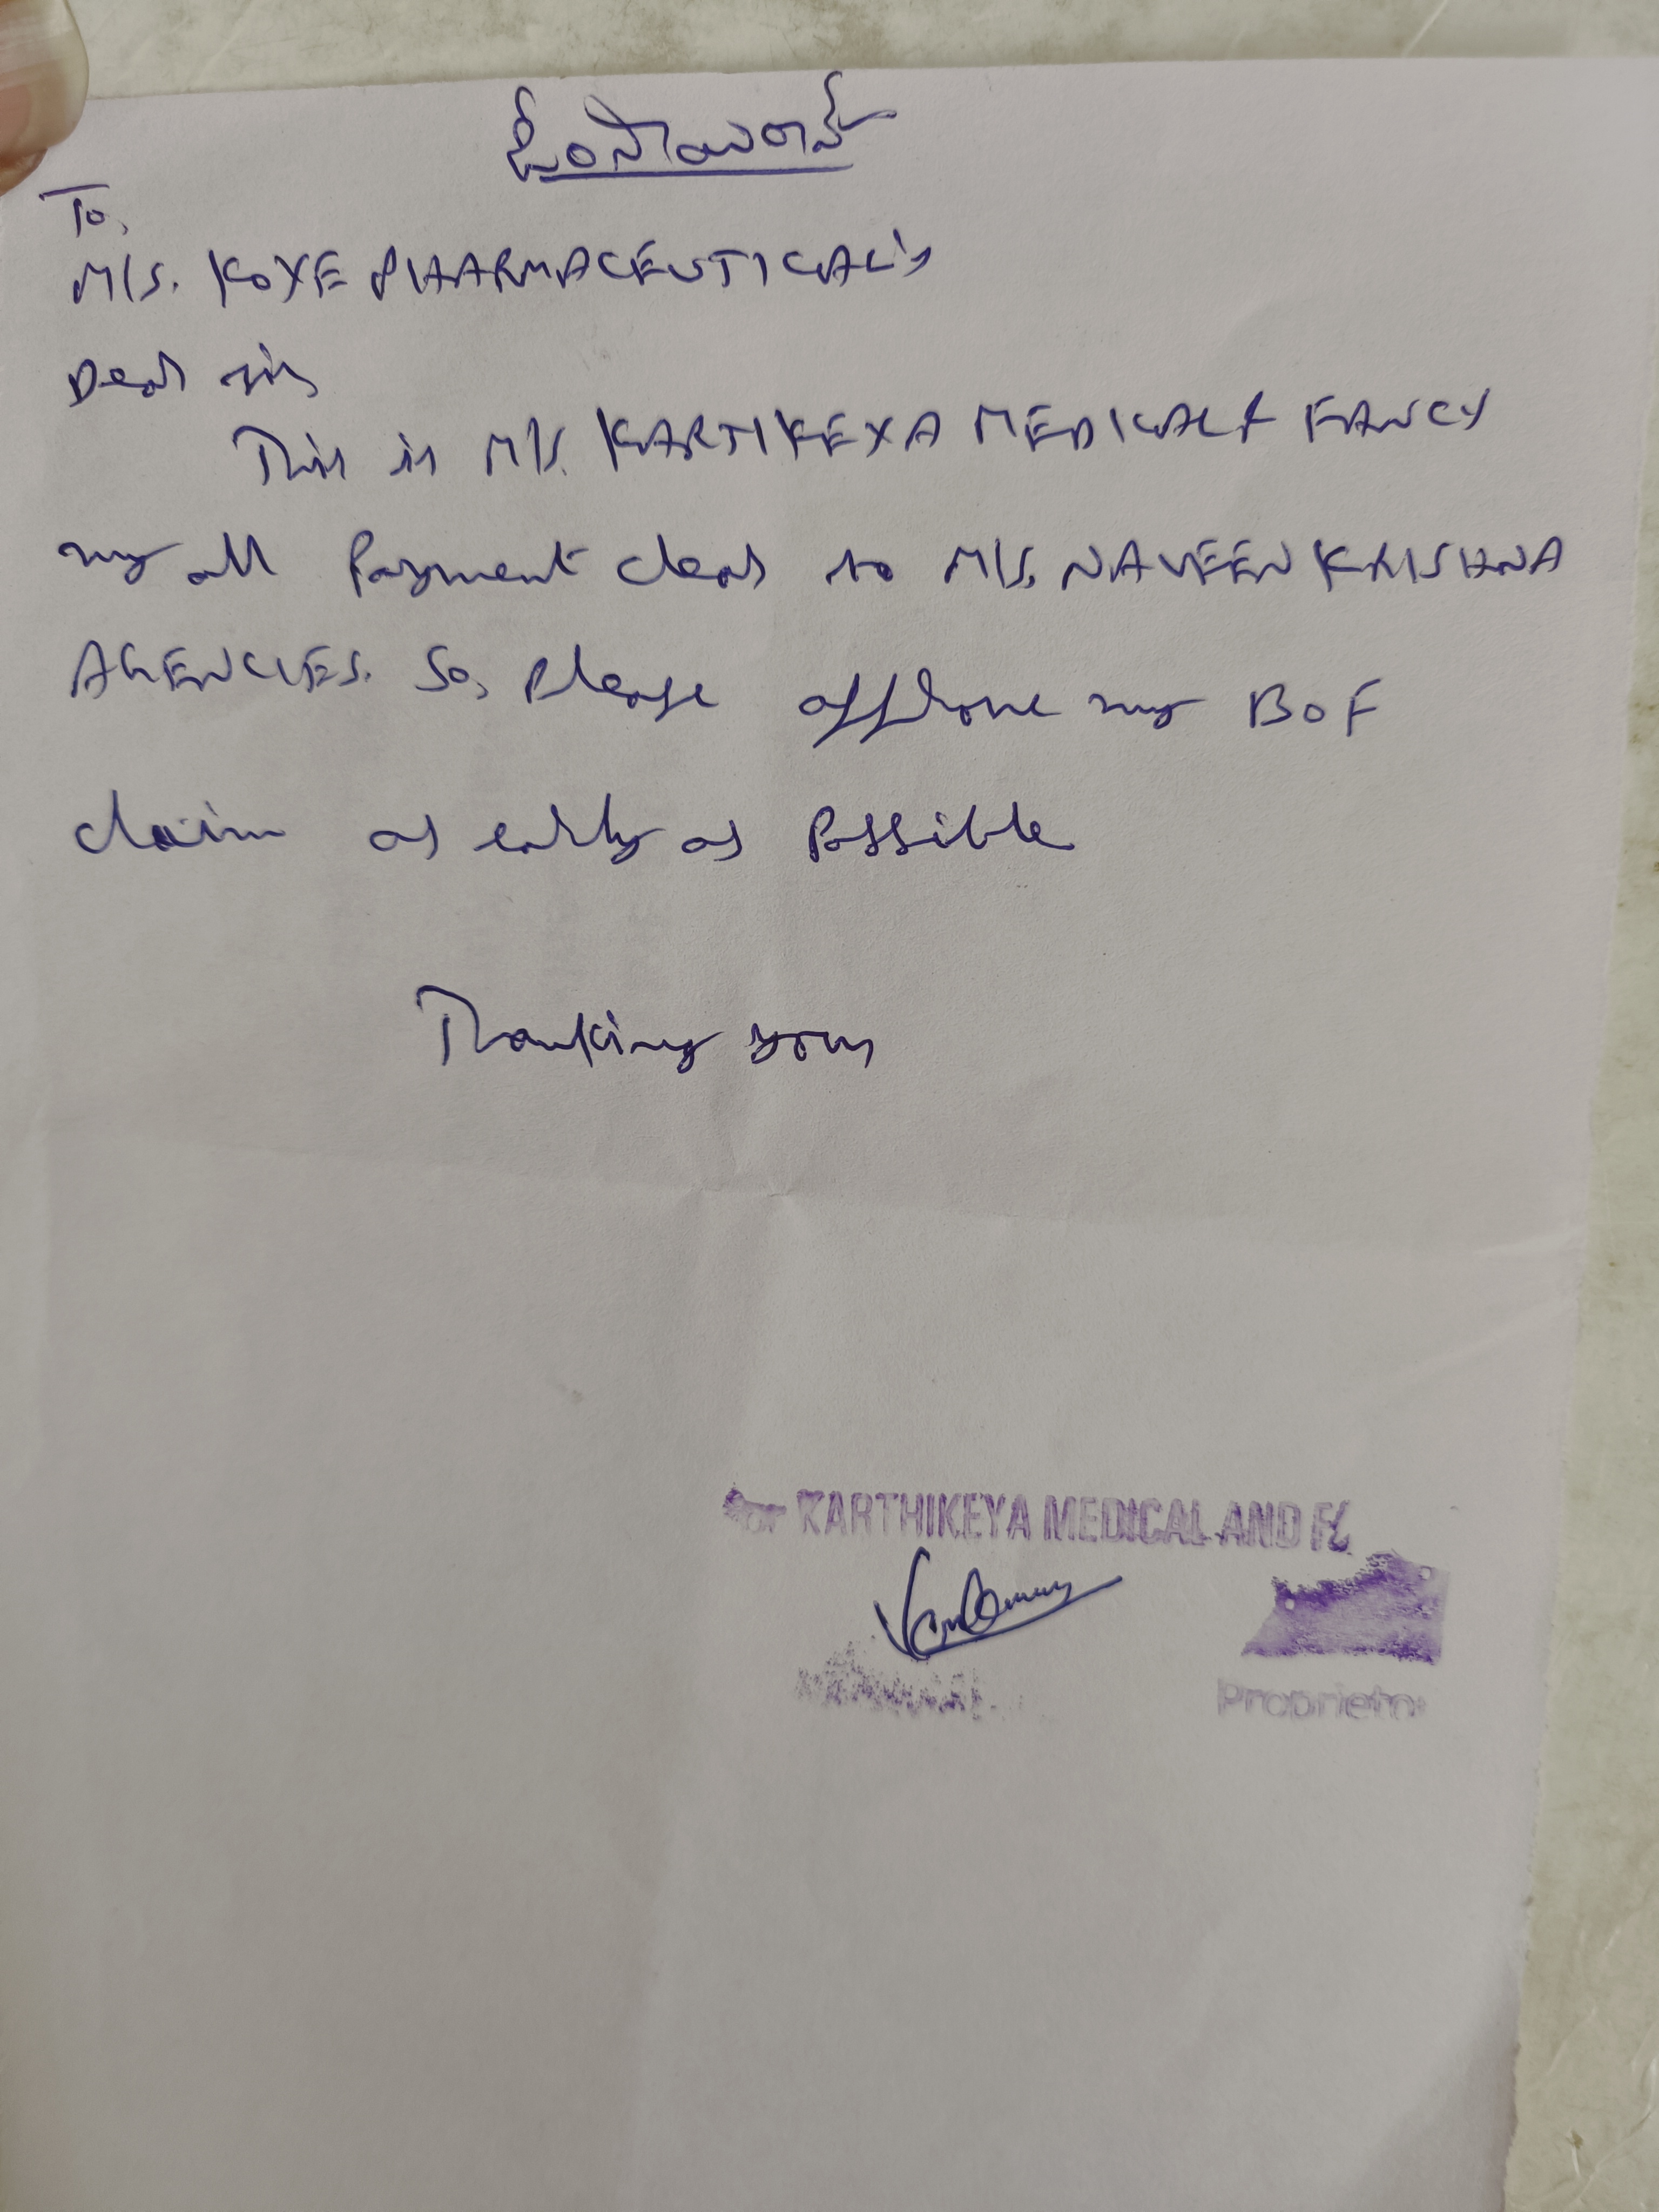 ఓంసాయిరామ్
To,
M/S. KOYE PHARMACEUTICAL'S
Dear sir,
This is M/S. KARTIKEYA MEDICAL & FANCY
my all Payment clear to M/S. NAVEEN KRISHNA
AGENCIES. So, Please approve my BOF
claim as early as Possible
Thanking you,
For KARTHIKEYA MEDICAL AND
Proprietor